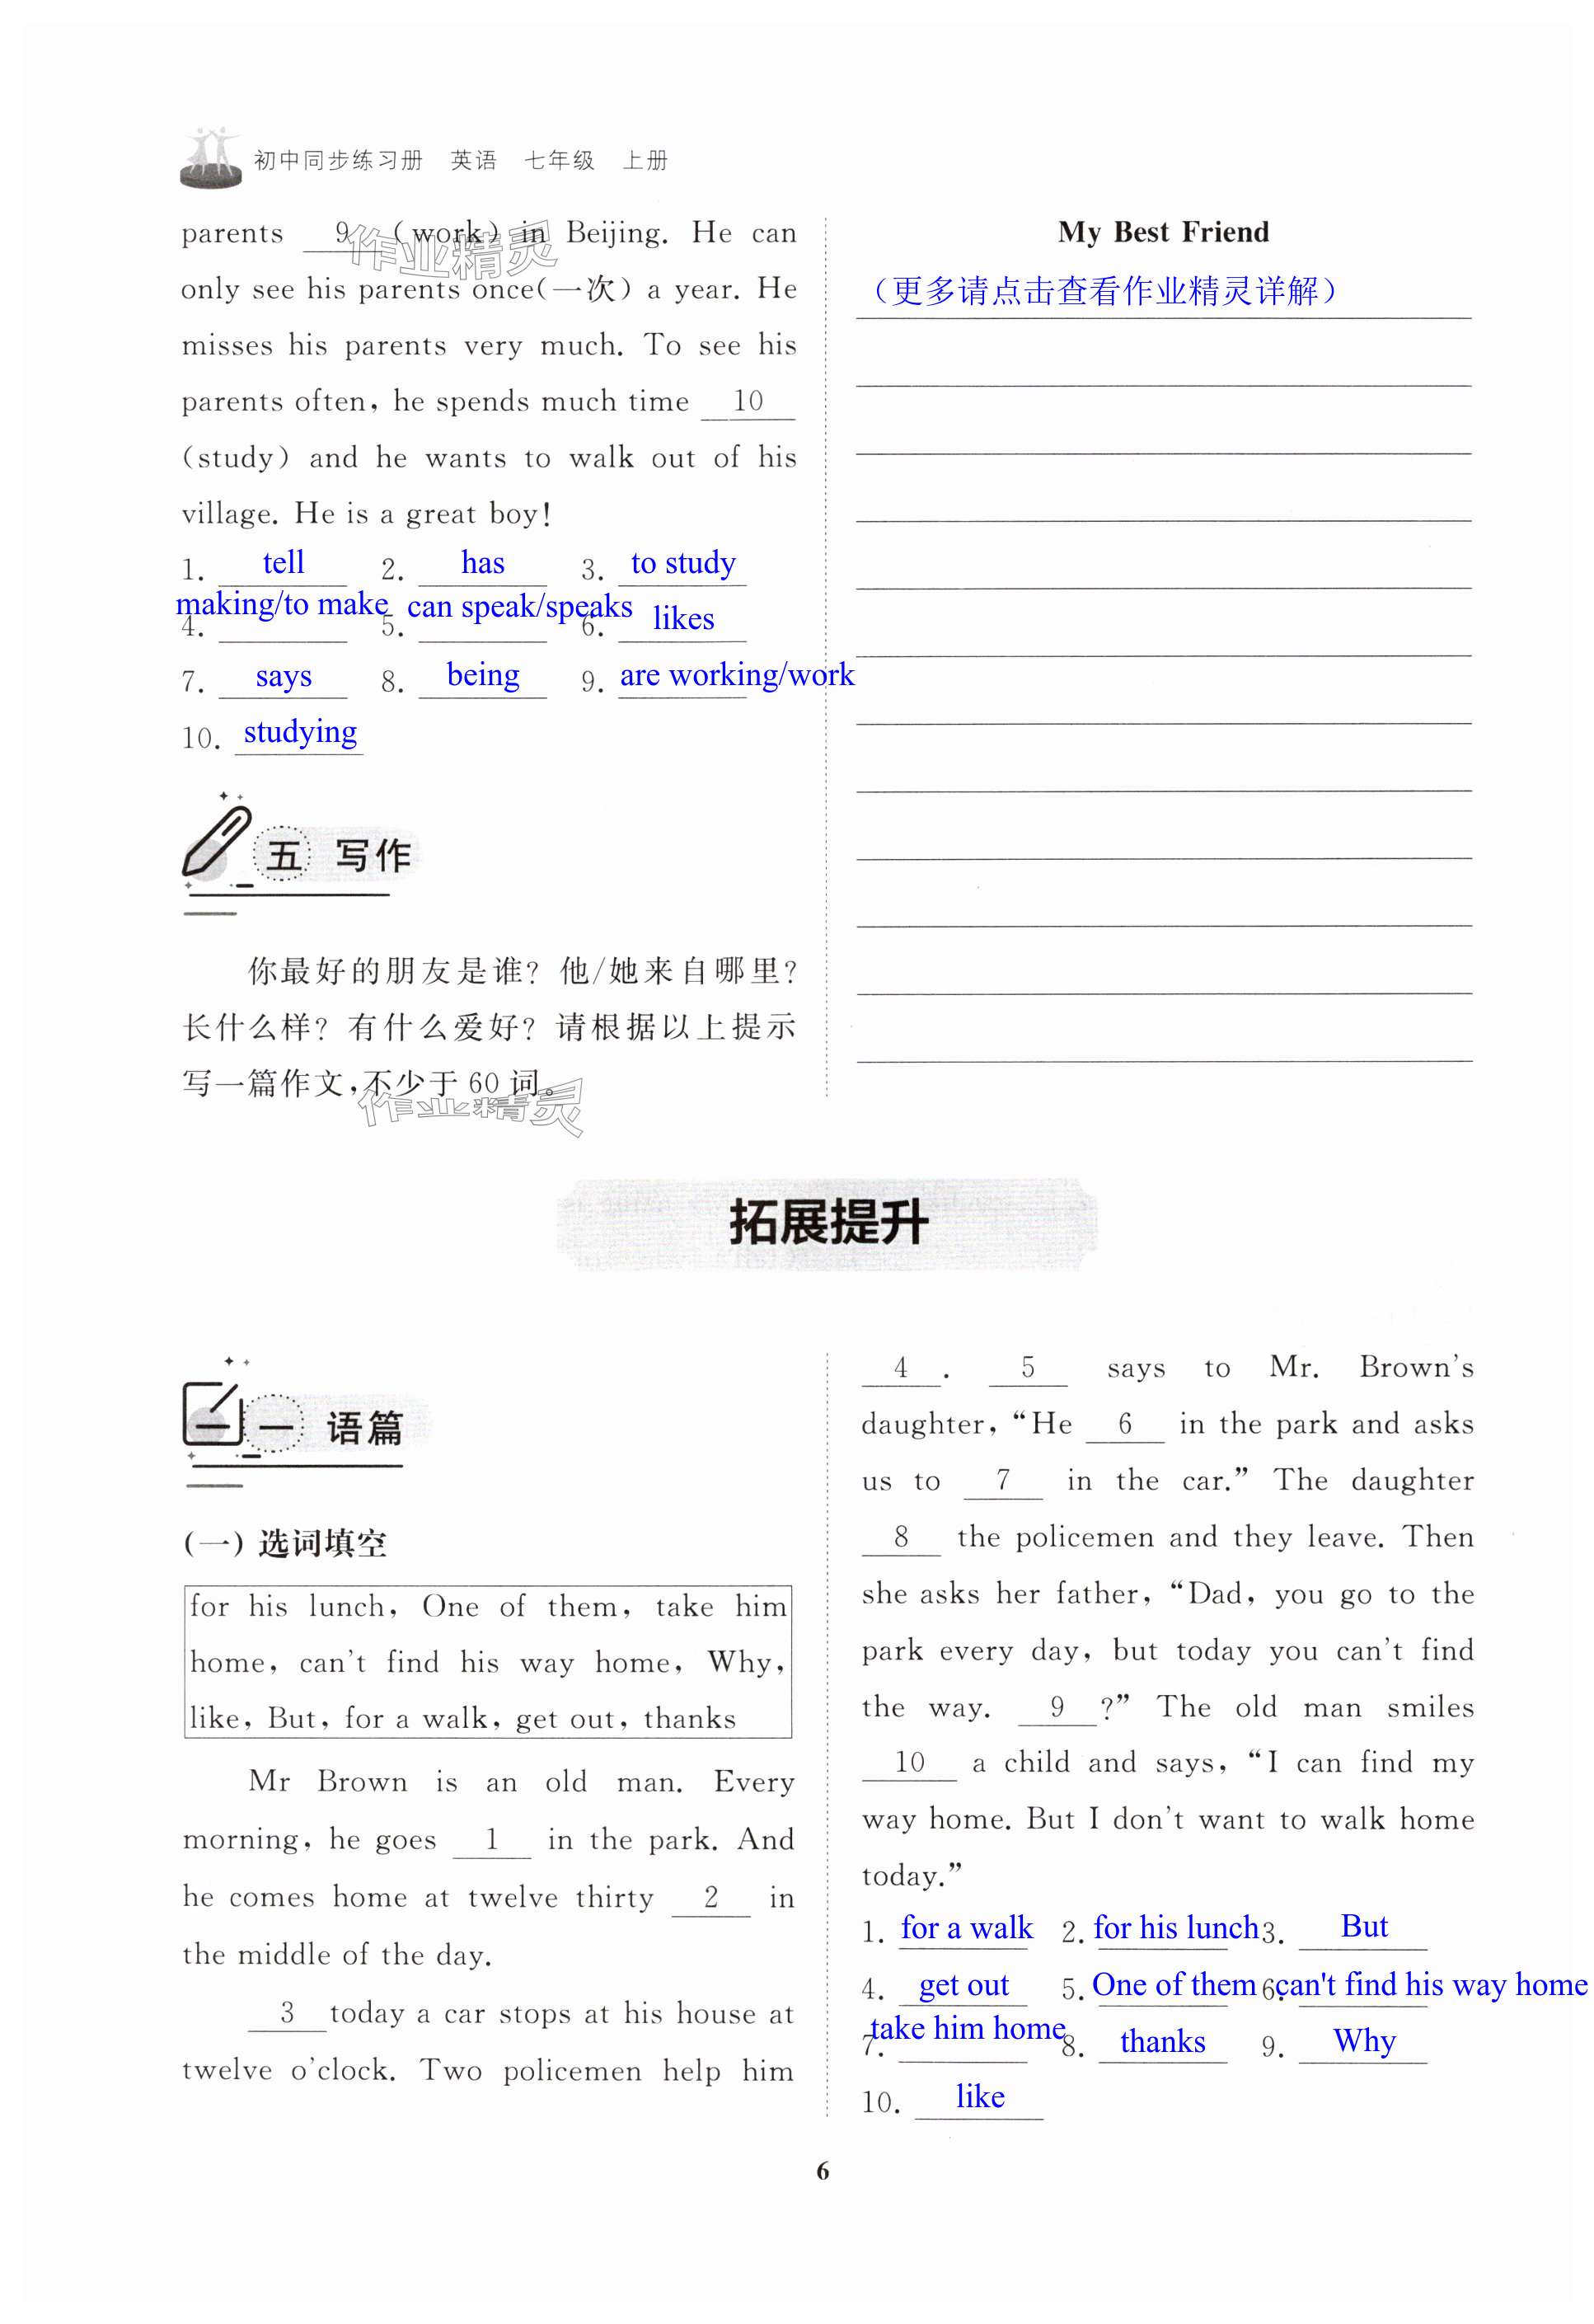 初中同步练习册 英语 七年级 上册
parents 9 (work) in Beijing. He can
only see his parents once(一次) a year. He
misses his parents very much. To see his
parents often, he spends much time 10
(study) and he wants to walk out of his
village. He is a great boy!
1. tell 2. has 3. to study
4. making/to make 5. can speak/speaks 6. likes
7. says 8. being 9. are working/work
10. studying
五 写作
你最好的朋友是谁? 他/她来自哪里?
长什么样? 有什么爱好? 请根据以上提示
写一篇作文,不少于 60 词。
作业精灵
作业精灵
My Best Friend
（更多请点击查看作业精灵详解）
拓展提升
一 语篇
(一) 选词填空
for his lunch, One of them, take him
home, can't find his way home, Why,
like, But, for a walk, get out, thanks
Mr Brown is an old man. Every
morning, he goes 1 in the park. And
he comes home at twelve thirty 2 in
the middle of the day.
3 today a car stops at his house at
twelve o'clock. Two policemen help him
4 . 5 says to Mr. Brown's
daughter, “He 6 in the park and asks
us to 7 in the car.” The daughter
8 the policemen and they leave. Then
she asks her father, “Dad, you go to the
park every day, but today you can't find
the way. 9 ?” The old man smiles
10 a child and says, “I can find my
way home. But I don't want to walk home
today.”
1. for a walk 2. for his lunch 3. But
4. get out 5. One of them 6. can't find his way home
7. take him home 8. thanks 9. Why
10. like
6